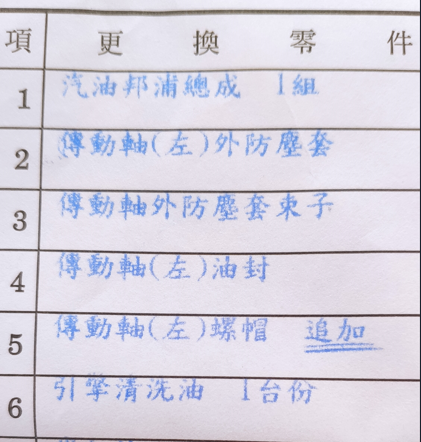 項 更換零件
1 汽油邦浦總成 1組
2 傳動軸(左)外防塵套
3 傳動軸外防塵套束子
4 傳動軸(左)油封
5 傳動軸(左)螺帽 追加
6 引擎清洗油 1台份